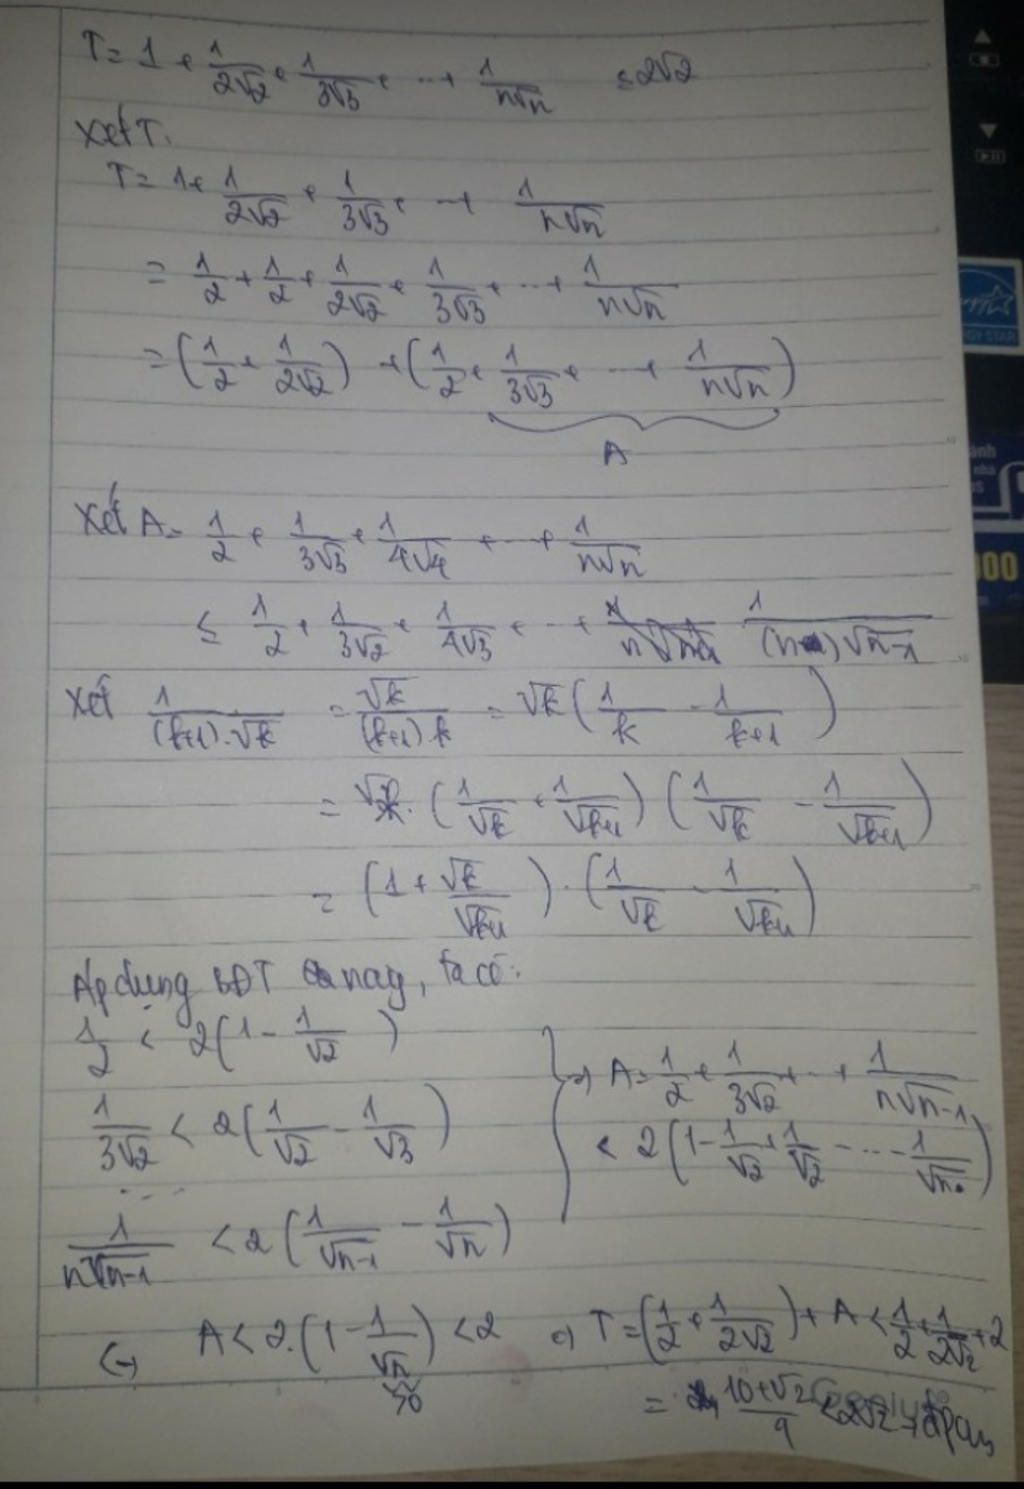 T = 1 + 1/(2√2) + 1/(3√3) + ... + 1/(n√n) ≤ 2√2
Xét T:
T = 1 + 1/(2√2) + 1/(3√3) + ... + 1/(n√n)
= 1/2 + 1/2 + 1/(2√2) + 1/(3√3) + ... + 1/(n√n)
= (1/2 + 1/(2√2)) + (1/2 + 1/(3√3) + ... + 1/(n√n))
A
Xét A = 1/2 + 1/(3√3) + 1/(4√4) + ... + 1/(n√n)
≤ 1/2 + 1/(3√2) + 1/(4√3) + ... + 1/((n)√(n-1))
Xét 1/((k+1).√k) = √k/((k+1)k) = √k (1/k - 1/(k+1))
= √k. (1/√k + 1/√(k+1)) (1/√k - 1/√(k+1))
= (1 + √k/√(k+1)) . (1/√k - 1/√(k+1))
Áp dụng BĐT nay, ta có:
1/2 < 2(1 - 1/√2)
1/(3√2) < 2(1/√2 - 1/√3)
...
1/(n√(n-1)) < 2(1/√(n-1) - 1/√n)
=> A = 1/2 + 1/(3√2) + ... + 1/(n√(n-1))
< 2(1 - 1/√2 + 1/√2 - ... - 1/√n)
A < 2.(1 - 1/√n) < 2 => T = (1/2 + 1/(2√2)) + A < 1/2 + 1/(2√2) + 2
>0
= (10+√2)/4 < 2√2 → đpcm
ENERGY STAR